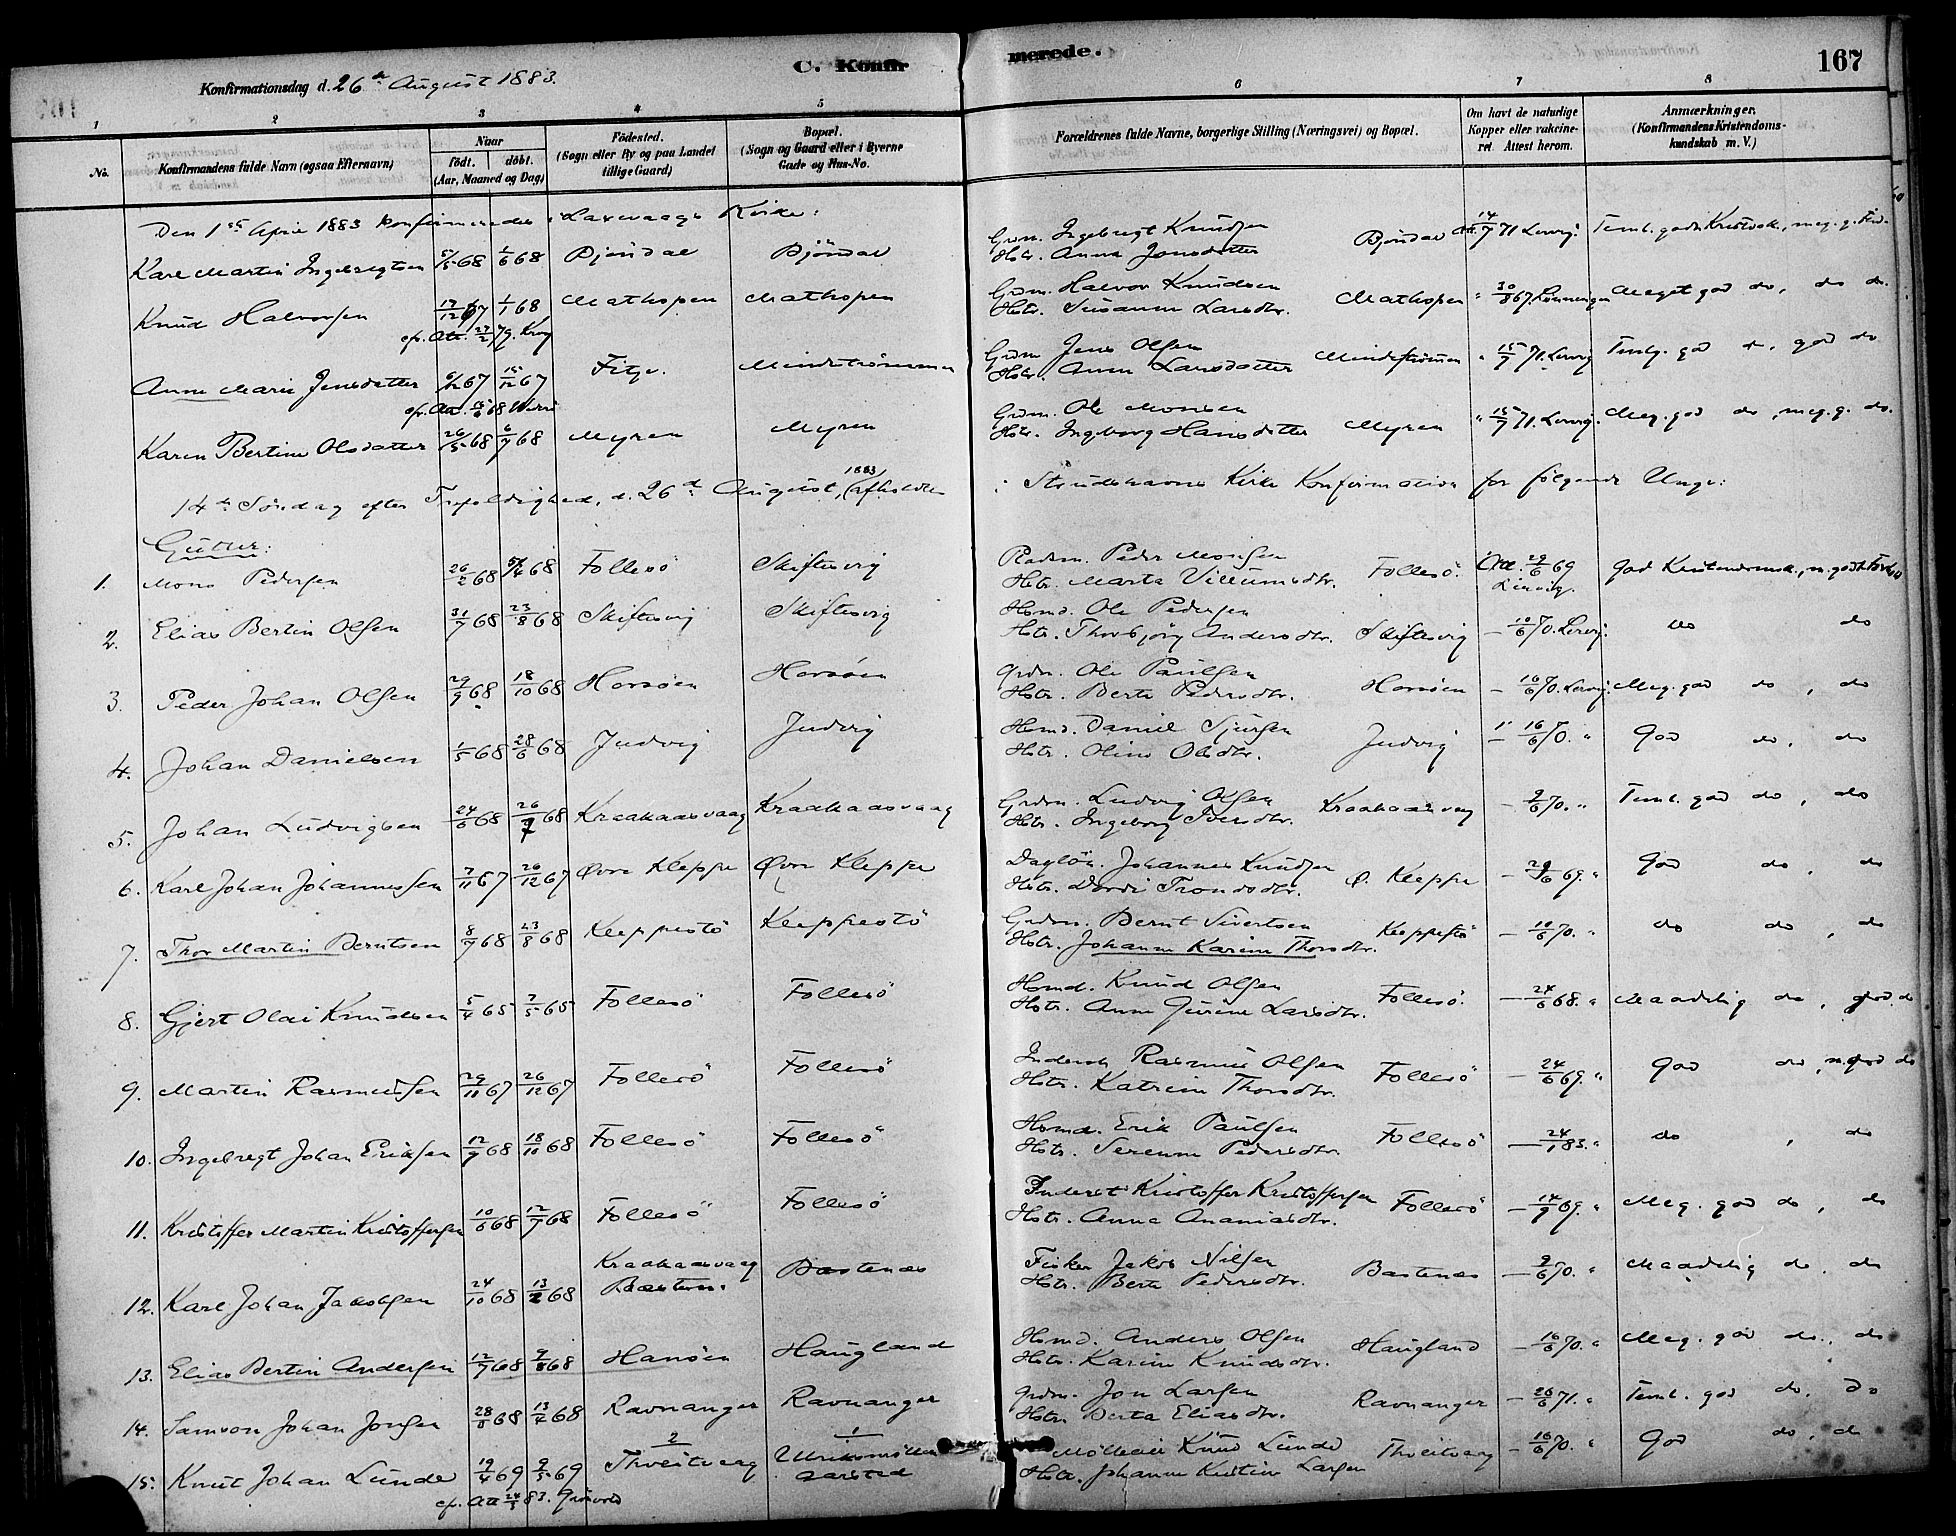 C. Konfirmerede. 167
Konfirmationsdag d. 26de August 1883.
1 2 3 4 5 6 7 8
No.
Konfirmandens fulde Navn (ogsaa Efternavn)
Naar
födt. döbt.
(Aar, Maaned og Dag)
Födested.
(Sogn eller By og paa Landet
tillige Gaard)
Bopæl.
(Sogn og Gaard eller i Byerne
Gade og Hus-No.
Forældrenes fulde Navne, borgerlige Stilling (Næringsvei) og Bopæl.
Om havt de naturlige
Kopper eller vakcine-
ret. Attest herom.
Anmærkninger.
(Konfirmandens Kristendoms-
kundskab m. V.)
Den 1ste April 1883 konfirmeredes i Laxevaags Kirke:
Karl Martin Ingebregtsen 5/5 68 1/6 68 Bjöndal Bjöndal Grdm. Ingebregt Knudsen Bjöndal Att. 14/7 71 Lervig.
Hstr. Anna Jonsdatter
Knud Halvorsen 17/12 67 1/1 68 Mathopen Mathopen Grdm. Halvor Knudsen Mathopen " 30/8 67 Meget god do, do do.
Hstr. Susanne Larsdtr.
cfr. Att. 27/2 79. Krog
Anne Marie Jensdatter 6/12 67 15/12 67 Fitje. Grdm Jens Olsen " 15/7 71. Lervig Teml. god do, god do
Hstr. Anna Larsdatter
Karen Bertine Olsdatter 26/5 68 6/7 68 Myren Myren Grdm. Ole Monsen Myren " 15/7 71. Lervig. Meg. god do, meg. g. do.
Hstr. Ingeborg Hansdatter
14de Söndag efter Trefoldighed, d. 26de August, (1883) afholdtes i Strudshavns Kirke Konfirmation for fölgende Unge:
Gutter:
1. Mons Pedersen 26/2 68 5/4 68 Follesö Skiftesvig Peder Monsen Follesö. Att. 29/6 69
Hstr. Marta Villumsdtr. Lervig.
2. Elias Bertin Olsen 31/7 68 23/8 68 Skiftesvig Skiftesvig Hsmd. Ole Pedersen Skiftesvig - 10/6 70. Lervig. do do
Hstr. Thorbjörg Andersdtr.
3. Peder Johan Olsen 29/9 68 18/10 68 Horsöen Horsöen Grdm. Ole Paulsen Horsöen - 16/6 70. Lervig. Meg. god do, do
Hstr. Berta Pedersdtr.
4. Johan Danielsen 1/5 68 28/6 68 Judvig Judvig Hsmd. Daniel Sjursen Judvig - 16/6 70. " God do, do
Hstr. Oline Olsdtr.
5. Johan Ludvigsen 24/6 68 26/7 68 Kraakaasvaag Kraakaasvaag Grdm. Ludvig Olsen Kraakaasvaag - 9/6 70. " Teml. god do, do
Hstr. Ingeborg Iversdtr.
6. Karl Johan Johannessen 7/11 67 26/12 67 Øvre Kleppe Øvre Kleppe Daglön. Johannes Knudsen Ø. Kleppe - 29/6 69. " God do, do
Hstr. Dordi Trondsdtr.
7. Thor Martin Berntsen 8/7 68 23/8 68 Kleppestö Kleppestö Grdm. Bernt Sivertsen Kleppestö - 10/6 70. " do do, do
Hstr. Johanne Karine Thorsdtr.
8. Gjert Olai Knudsen 5/4 65 7/5 65 Follesö Follesö Hsmd. Knud Olsen Follesö. - 24/6 68. " Maadelig do, god. do
Hstr. Anne Gurine Larsdtr.
9. Martin Rasmussen 29/11 67 26/12 67 Follesö Follesö Inderst Rasmus Olsen Follesö - 24/6 69. " God do, do
Hstr. Katrine Thorsdtr.
10. Ingebregt Johan Eriksen 12/9 68 18/10 68 Follesö Follesö Hsmd. Erik Paulsen Follesö - 24/1 83. " do, do
Hstr. Serenne Pedersdtr.
11. Kristoffer Martin Kristoffersen 10/6 68 12/7 68 Follesö Follesö Inderst Kristoffer Kristoffersen Follesö - 14/9 69. " Meg. god do, do
Hstr. Anna Ananiasdtr.
12. Karl Johan Jakobsen 24/10 68 13/2 68 Kraakaasvaag Bastenes Fisker Jakob Nilsen Bastenes - 9/6 70. " Maadelig do. do
Hstr. Berte Pedersdtr.
13. Elias Bertin Andersen 12/7 68 9/8 68 Hanöen Haugland Hsmd. Anders Olsen Haugland - 16/6 70. " Meg. god do., do
Hstr. Karine Knudsdtr.
14. Samson Johan Jonsen 28/8 68 Ravnanger Ravnanger Grdm. Jon Larsen Ravnanger - 26/6 71. " Teml. god do, do
Hstr. Berta Eliasdtr.
15. Knut Johan Lunde 19/4 69 9/5 69 Ulriksmöllen Knud Lunde - 16/6 70. " God do, do
Aarstad Hstr. Johanne Kristine Larsen
cfr. Att 24/3 83.